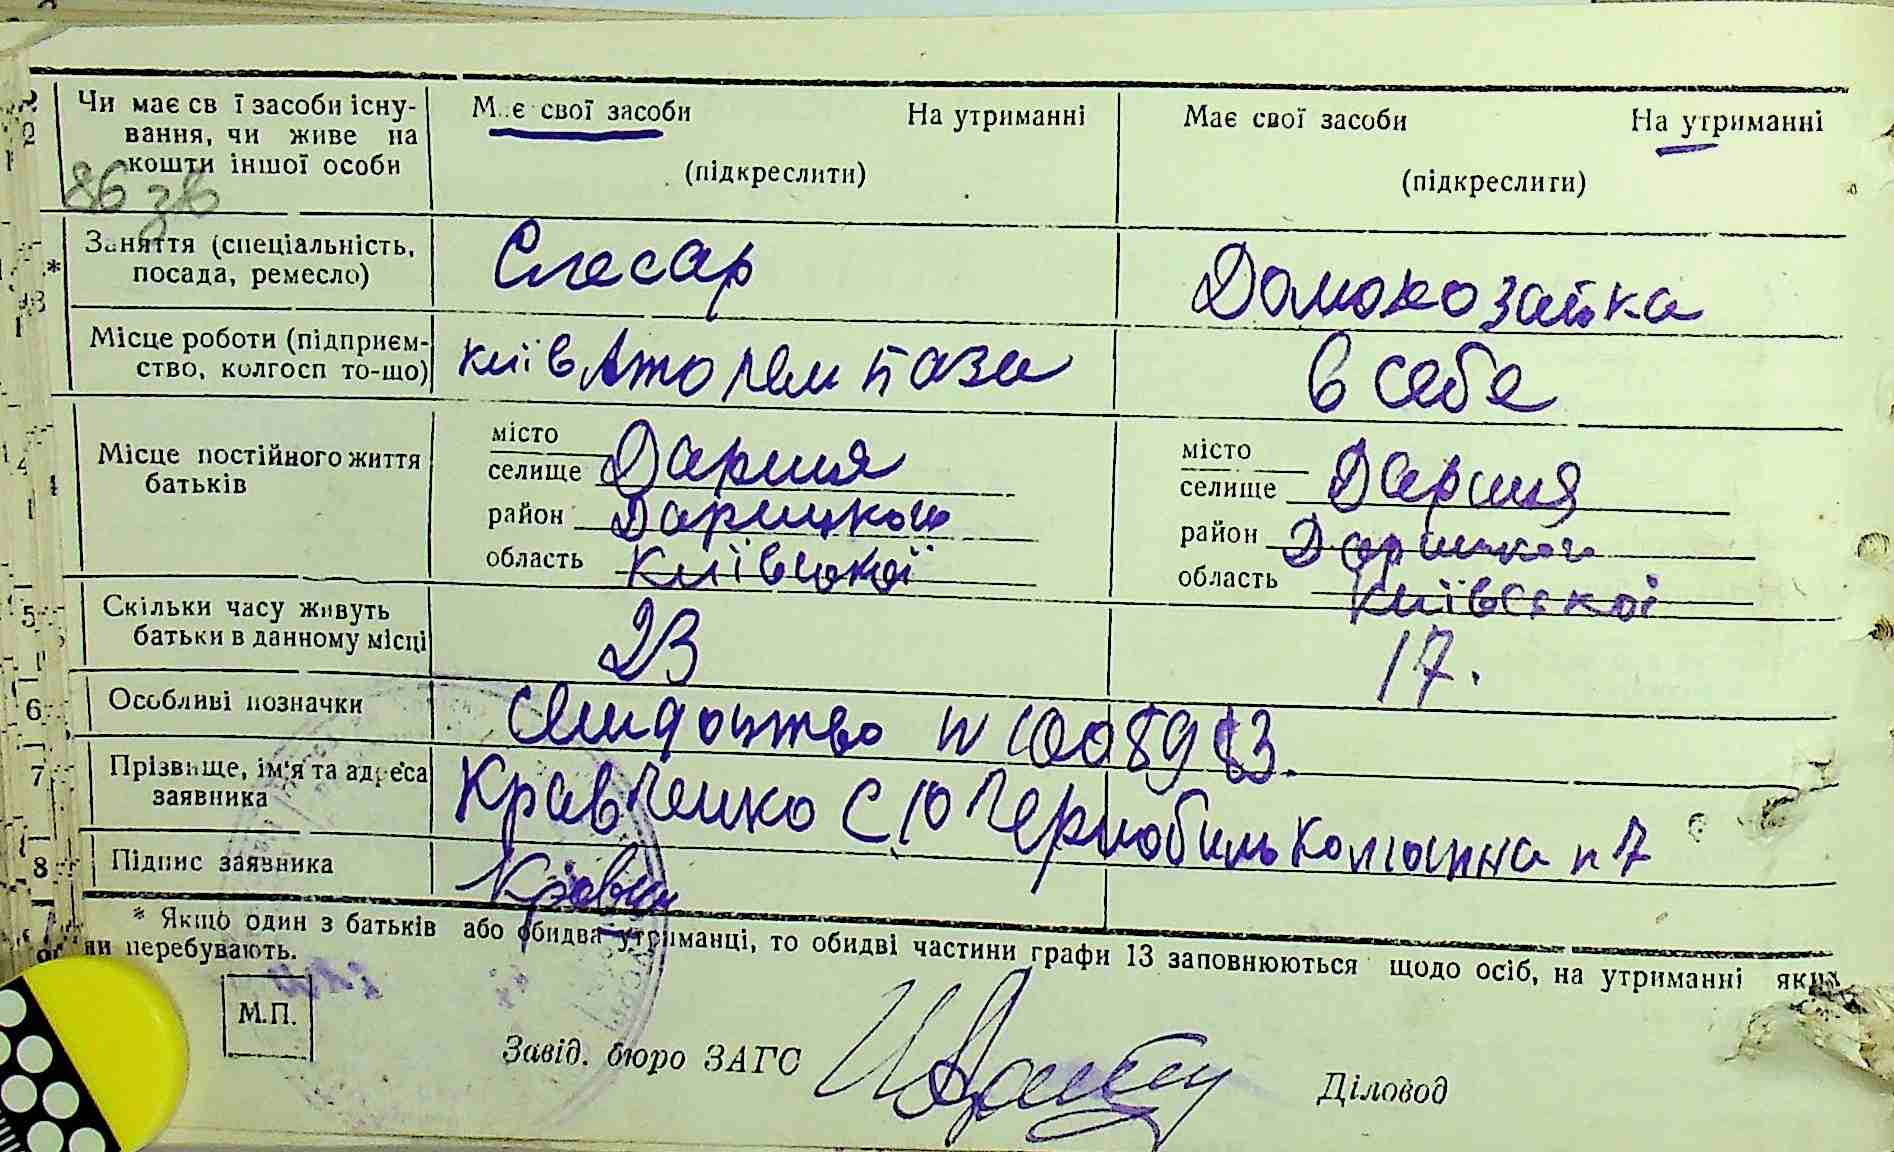 Чи має св ї засоби існу-
вання, чи живе на
кошти іншої особи
М..є свої засоби На утриманні
(підкреслити)
Має свої засоби На утриманні
(підкреслити)
86 зв
Заняття (спеціальність,
посада, ремесло)
Слесар
Домохозайка
Місце роботи (підприєм-
ство, колгосп то-що)
київ Аторем база
в себе
4 Місце постійного життя
батьків
місто
селище Дарния
район Дарницкого
область Київської
місто
селище Дарния
район Дарницкого
область Київської
5 Скільки часу живуть
батьки в данному місці
23
17.
6 Особливі позначки
свидоцтво N 1008913.
7 Прізвище, ім'я та адреса
заявника
Кравченко С Ю Чернобиль Колгоспна н 7
8 Підпис заявника
Кравчен
* Якщо один з батьків або обидва утриманці, то обидві частини графи 13 заповнюються щодо осіб, на утриманні яких
ни перебувають.
М.П.
Завід. бюро ЗАГС
Діловод